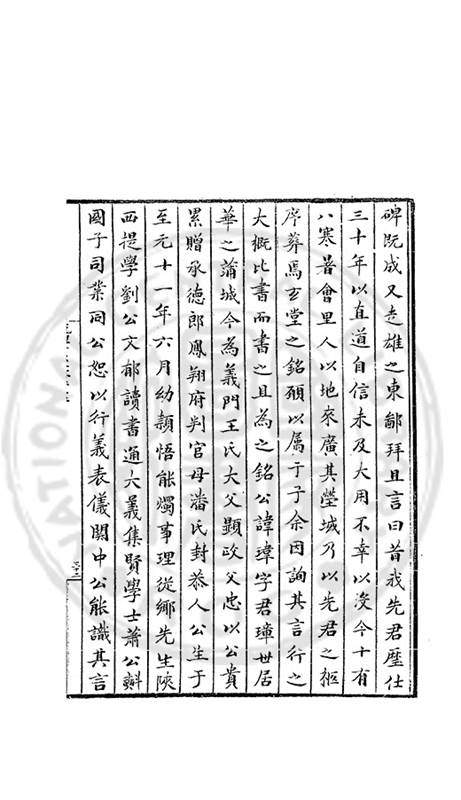 碑既成又走雄之東鄙拜且言曰昔我先君歷仕
三十年以直道自信未及大用不幸以沒今十有
八寒暑會里人以地來廣其塋域乃以先君之柩
序葬焉玄堂之銘願以属于子余因詢其言行之
大概比書而書之且為之銘公諱瑋字君璋世居
華之蒲城今為義門王氏大父顯政父忠以公貴
累贈承德郎鳳翔府判官母潘氏封恭人公生于
至元十一年六月幼頴悟能燭事理從鄉先生陝
西提學劉公文郁讀書通大義集賢學士蕭公㪺
國子司業同公恕以行義表儀關中公能識其言